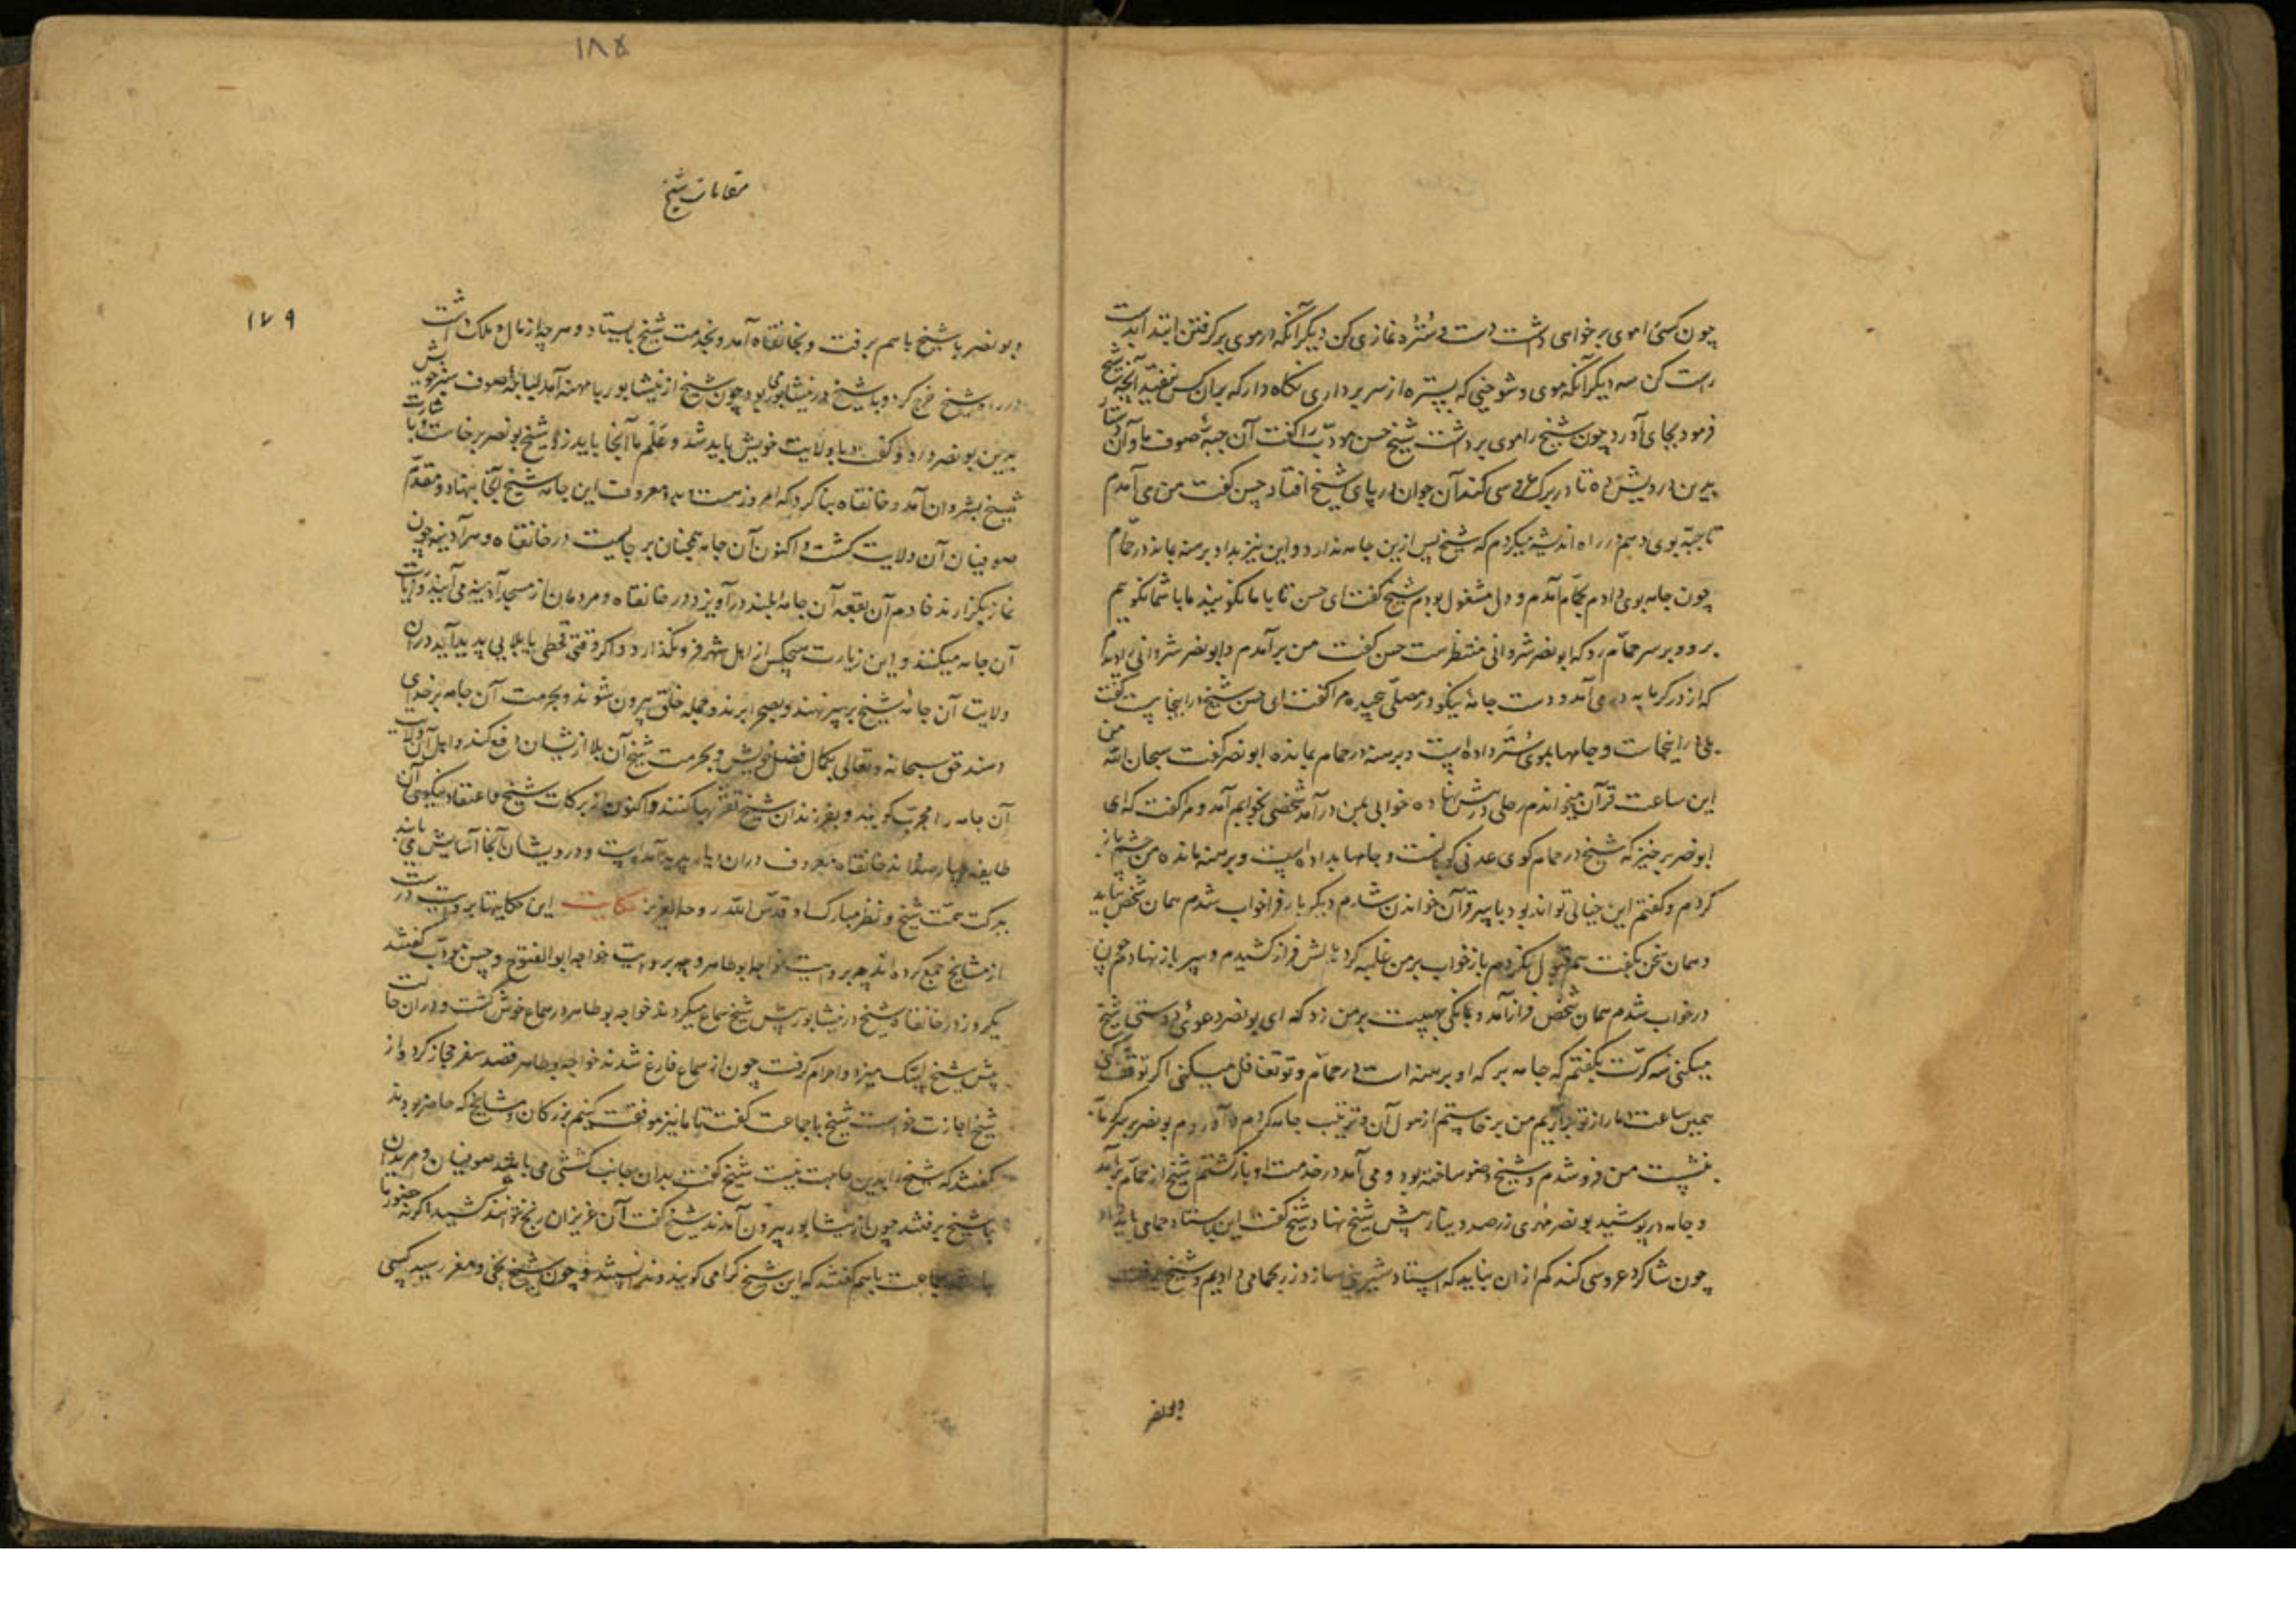 چون کسی را موی برخواهی داشت دست و ستره نمازی کن دیگر آنکه در موی برگرفتن ابتدا بدست
راست کن سه دیگر آنکه موی و شوخنی که بستره از سر برداری نگاه دار که بران کس نیفتد آنچه شیخ
فرمود بجای آورد چون شیخ را موی برداشت شیخ حسن مودّب را گفت آن جبّه صوف ما و آن دستار
بدین درویش ده تا در برگ عروسی کند آن جوان در پای شیخ افتاد حسن گفت من می آمدم
تا جبّه بوی دهم در راه اندیشه میکردم که شیخ پس ازین جامه ندارد و این نیز بداد برهنه بماند در حمّام
چون جامه بوی دادم بحمّام آمدم و دل مشغول بودم شیخ گفت ای حسن تا با ما نگویند ما با شما نگوییم
برو و بر سر حمّام رو که ابو نصر شروانی منتظرست حسن گفت من برآمدم و ابو نصر شروانی را دیدم
که از در گرمابه در می آمد و دست جامه نیکو در مصلّی پیچیده مرا گفت ای حسن شیخ در اینجا هست گفت
بلی در اینجاست و جامها بموی ستر داده است و برهنه در حمام بمانده ابو نصر گفت سبحان الله من
این ساعت قرآن میخواندم رحلی در پیش نهاده خوابی بمن درآمد شخصی بخوابم آمد و مرا گفت که ای
ابو نصر برخیز که شیخ در حمام کوی عدنی کوبانست و جامها بداده است و برهنه مانده من چشم باز
کردم و گفتم این خیالی تواند بود با سر قرآن خواندن شدم دیگر بار فرا خواب شدم همان شخص بیامد
و همان سخن بگفت هم قبول نکردم باز خواب بر من غلبه کرد بالش فراز کشیدم و سر باز نهادم چون
در خواب شدم همان شخص فراز آمد و بانگی بهیبت بر من زد که ای بو نصر دعوی دوستی شیخ
میکنی سه کرّت بگفتم که جامه بر که او برهنه است در حمّام و تو تغافل میکنی اگر توقّف کنی
همین ساعت دمار از تو برآریم من برخاستم از هول آن و ترتیب جامه کردم و آوردم بو نصر بر سر گرمابه
بنشست من فرو شدم و شیخ وضو ساخته بود و می آمد در خدمت او بازگشتم شیخ از حمّام برآمد
و جامه در پوشید بو نصر مهری زر صد دینار پیش شیخ نهاد شیخ گفت این باستاد حمامی باید داد
چون شاگرد عروسی کند کم از ان نباید که استاد شیرینی سازد زر بحمامی دادیم و شیخ برفت
و بو نصر
۱۸۵
مقامات شیخ
۱۷۹
و بو نصر با شیخ باسم برفت و بخانقاه آمد و بخدمت شیخ بایستاد و هرچه از مال و ملک داشت
در راه شیخ خرج کرد و با شیخ در نیشابور می بود چون شیخ از نیشابور با میهنه آمد لباچه صوف سبز خویش
بدین بو نصر داد و گفت با ولایت خویش باید شد و علم ما آنجا باید زد شیخ بو نصر برخاست و با اشارت
شیخ بشروان آمد و خانقاه بنا کرد که امروز هست و بدو معروف این جامه شیخ آنجا بنهاد و مقدّم
صوفیان آن ولایت گشت و اکنون آن جامه همچنان بر جایست در خانقاه و هر آدینه چون
نماز بگزارند خادم آن بقعه آن جامه بلند درآویزد در خانقاه و مردمان از مسجد آدینه می آیند و زیارت
آن جامه میکنند و این زیارت هیچکس از اهل شهر فرو نگذارد و اگر وقتی قحطی یا بلایی پدید آید دران
ولایت آن جامه شیخ بر سر نهند و بصحرا برند و جمله خلق بیرون شوند و بحرمت آن جامه بر خدای
دهند حق سبحانه و تعالی بکمال فضل خویش و بحرمت شیخ آن بلا از یشان دفع کند و اهل آن ولایت
آن جامه را مجرّب گویند و بفرزندان شیخ تقرّبها کنند و اکنون از برکات شیخ و اعتقاد نیکوی آن
طایفه چهارصد اند خانقاه معروف دران دیار پدید آمده است و درویشان آنجا آسایش می یابند
ببرکت همّت شیخ و نظر مبارک او قدّس الله روحه العزیز حکایت این حکایتها بروایت درست
از مشایخ جمع کرده اند چه بروایت خواجه ابو طاهر و چه بروایت خواجه ابو الفتوح و حسن مودّب گفتند
یک روز در خانقاه شیخ در نیشابور پیش شیخ سماع میکردند خواجه بو طاهر در سماع خوش گشت و دران حالت
پیش شیخ لبّیک میزد و احرام گرفت چون از سماع فارغ شدند خواجه بو طاهر قصد سفر حجاز کرد و از
شیخ اجازت خواست شیخ با جماعت گفت تا ما نیز موافقت کنیم بزرگان و مشایخ که حاضر بودند
گفتند که شیخ را بدین حاجت نیست شیخ گفت بدان جانب کششی می باشد صوفیان و مریدان
با شیخ برفتند چون از نیشابور بیرون آمدند شیخ گفت آن عزیزان رنج نتوانند کشید اگر نه حضور ما
جماعت باهم گفتند که این شیخ کرامی گویند و ندانستند و چون شیخ بخی و مغر رسید کسی